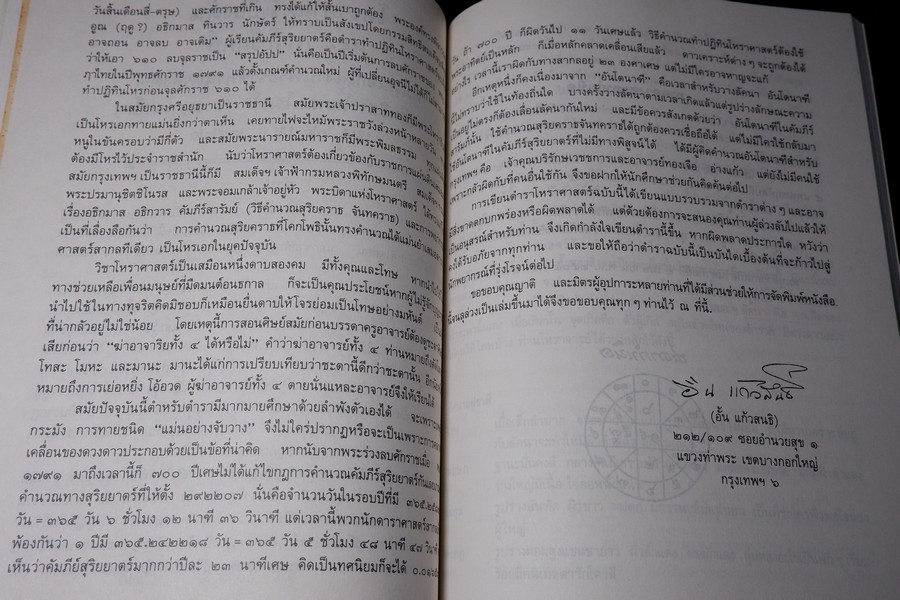 วันสิ้นเดือนสี่-ตรุษ) และศักราชที่เกิน ทรงได้แก้ให้สั้นเบาถูกต้อง พระองค์ทรง
อูณ (ฤดู ?) อธิกมาส ทินวาร นักษัตร์ ให้ทราบเป็นสังเขปโดยกรรมสิทธิ
อาจถอน อาจลบ อาจเติม” ผู้เรียนคัมภีร์สุริยยาตร์คือตำราทำปฏิทินโหรา
ว่าให้เอา ๖๑๐ ลบจุลราชเป็น “สรุปอัปป” นั่นคือเป็นปีเริ่มต้นการลบศักราช
ภุาไทยในปีพุทธศักราช ๑๗๙๑ แล้วตั้งเกณฑ์คำนวณใหม่ ผู้ที่เปลี่ยนอุจนีไม่ได้
ทำปฏิทินโหรก่อนจุลศักราช ๖๑๐ ได้
ในสมัยกรุงศรีอยุธยาเป็นราชธานี สมัยพระเจ้าปราสาททองก็มีพระโหรา
เป็นโหรเอกทายแม่นยิ่งกว่าตาเห็น เคยทายไฟจะไหม้พระราชวังล่วงหน้าหลายวัน
หนูในขันครอบว่ามีกี่ตัว และสมัยพระนารายณ์มหาราชก็มีพระพิมลธรรม
ต้องมีโหรไว้ประจำราชสำนัก นับว่าโหราศาสตร์ต้องเกี่ยวข้องกับราชการแผ่นดิน
สมัยกรุงเทพฯ เป็นราชธานีนี้ก็มี สมเด็จฯ เจ้าฟ้ากรมหลวงพิทักษมนตรี สมเด็จ
พระปรมานุชิตชิโนรส และพระจอมเกล้าเจ้าอยู่หัว พระบิดาแห่งโหราศาสตร์ ได้
เรื่องอธิกมาส อธิกวาร คัมภีร์สารัมย์ (วิธีคำนวณสุริยคราช จันทคราช) และการ
เป็นที่เลื่องลือกันว่า การคำนวณสุริยคราชที่โคกโพธิ์นั้นทรงคำนวณได้แม่นยำเสมอ
ศาสตร์สากลทีเดียว เป็นโหรเอกในยุคปัจจุบัน
วิชาโหราศาสตร์เป็นเสมือนหนึ่งดาบสองคม มีทั้งคุณและโทษ หากนำไป
ทางช่วยเหลือเพื่อนมนุษย์ที่มืดมนต์อนธกาล ก็จะเป็นคุณประโยชน์หากผู้ไม่รู้จัก
นำไปใช้ในทางทุจริตคิดมิชอบก็เหมือนยื่นดาบให้โจรย่อมเป็นโทษอย่างมหันต์
ที่น่ากลัวอยู่ไม่ใช่น้อย โดยเหตุนี้การสอนศิษย์สมัยก่อนบรรดาครูอาจารย์ต้องดู
เสียก่อนว่า “ฆ่าอาจาริยทั้ง ๔ ได้หรือไม่” คำว่าฆ่าอาจารย์ทั้ง ๔ ท่านหมายถึง
โทสะ โมหะ และมานะ มานะได้แก่การเปรียบเทียบว่าชะตานี้ดีกว่าชะตานั้น อีกนัย
หมายถึงการเย่อหยิ่ง โอ้อวด ผู้ฆ่าอาจารย์ทั้ง ๔ ตายนั่นแหละอาจารย์จึงให้เรียนได้
สมัยปัจจุบันนี้ตำหรับตำรามีมากมายศึกษาด้วยลำพังตัวเองได้ จะเพราะเหตุ
กระมัง การทายชนิด “แม่นอย่างจับวาง” จึงไม่ใคร่ปรากฏหรือจะเป็นเพราะการ
เคลื่อนของดวงดาวประกอบด้วยเป็นข้อที่น่าคิด หากนับจากพระร่วงลบศักราชเมื่อ
๑๗๙๑ มาถึงเวลานี้ก็ ๗๐๐ ปีเศษไม่ได้แก้ไขกฎการคำนวณคัมภีร์สุริยยาตร์กันเลย
คำนวณทางสุริยยาตร์ที่ให้ตั้ง ๒๙๒๒๐๗ นั่นคือจำนวนวันในรอบปีที่มี ๓๖๕.๒๕
วัน = ๓๖๕ วัน ๖ ชั่วโมง ๑๒ นาฑี ๓๖ วินาฑี แต่เวลานี้พวกนักดาราศาสตร์สากล
พ้องกันว่า ๑ ปีมี ๓๖๕.๒๔๒๒๑๘ วัน = ๓๖๕ วัน ๕ ชั่วโมง ๔๘ นาฑี ๔๗ วินาฑี
เห็นว่าคัมภีย์สุริยยาตร์มากกว่าปีละ ๒๓ นาฑีเศษ คิดเป็นทศนิยมก็จะได้ ๐.๐๑๖
ถ้า ๗๐๐ ปี ก็ผิดวันไป ๑๑ วันเศษแล้ว วิธีคำนวณทำปฏิทินโหราศาสตร์ต้องใช้
พระอาทิตย์เป็นหลัก ก็เมื่อหลักคลาดเคลื่อนเสียแล้ว ดาวเคราะห์ต่าง ๆ จะถูกต้องได้
อย่างไร เวลานี้เราผิดกับทางสากลอยู่ ๒๓ องศาเศษ แต่ไม่มีใครอาจหาญจะแก้
อีกเหตุหนึ่งก็คงเนื่องมาจาก “อันโตนาฑี” คือเวลาสำหรับวางลัคนา อันโตนาฑี
ไม่ทราบว่าใช้ในท้องถิ่นใด บางครั้งวางลัคนาตามเวลาเกิดแล้วแต่รูปร่างลักษณะความ
เป็นอยู่ไม่ตรงก็ต้องเลื่อนลัคนากันใหม่ และมีข้อควรสังเกตด้วยว่า อันโตนาฑีในคัมภีร์
สารัมภ์นั้น ใช้คำนวณสุริยคราชจันทคราชได้ถูกต้องควรเชื่อถือได้ แต่ไม่มีใครใช้กลับมา
ใช้อันโตนาฑีในคัมภีร์สุริยยาตร์ที่ไม่มีทางพิสูจน์ได้ ได้มีผู้คิดคำนวณอันโตนาฑีสำหรับ
กรุงเทพฯ คือ เจ้าคุณบริรักษ์เวชชการและอาจารย์ทองเจือ อ่างแก้ว แต่ยังไม่มีคนใช้
เพราะกลัวผิดกับที่คนอื่นใช้กัน จึงขอฝากให้นักศึกษาช่วยกันคิดค้นต่อไป
การเขียนตำราโหราศาสตร์ฉบับนี้ได้เขียนแบบรวบรวมจากตำราต่าง ๆ และอาจ
มีสิ่งขาดตกบกพร่องหรือผิดพลาดได้ แต่ด้วยต้องการจะสนองคุณท่านผู้ล่วงลับไปแล้วให้
เป็นอนุสรณ์สำหรับท่าน จึงเกิดกำลังใจเขียนตำรานี้ขึ้น หากผิดพลาดประการใด หวังว่า
คงได้รับอภัยจากทุกท่าน และขอให้ถือว่าตำราฉบับนี้เป็นบันไดเบื้องต้นที่จะก้าวไปสู่
นักพยากรณ์ที่รุ่งโรจน์ต่อไป
ขอขอบคุณญาติ และมิตรผู้อุปการะหลายท่านที่ได้มีส่วนช่วยให้การจัดพิมพ์หนังสือ
นี้จนลุล่วงเป็นเล่มขึ้นมาได้จึงขอขอบคุณทุก ๆ ท่านไว้ ณ ที่นี้.
อั้น แก้วสนธิ
(อั้น แก้วสนธิ)
๒๑๒/๑๐๙ ซอยอำนวยสุข ๑
แขวงท่าพระ เขตบางกอกใหญ่
กรุงเทพฯ ๖